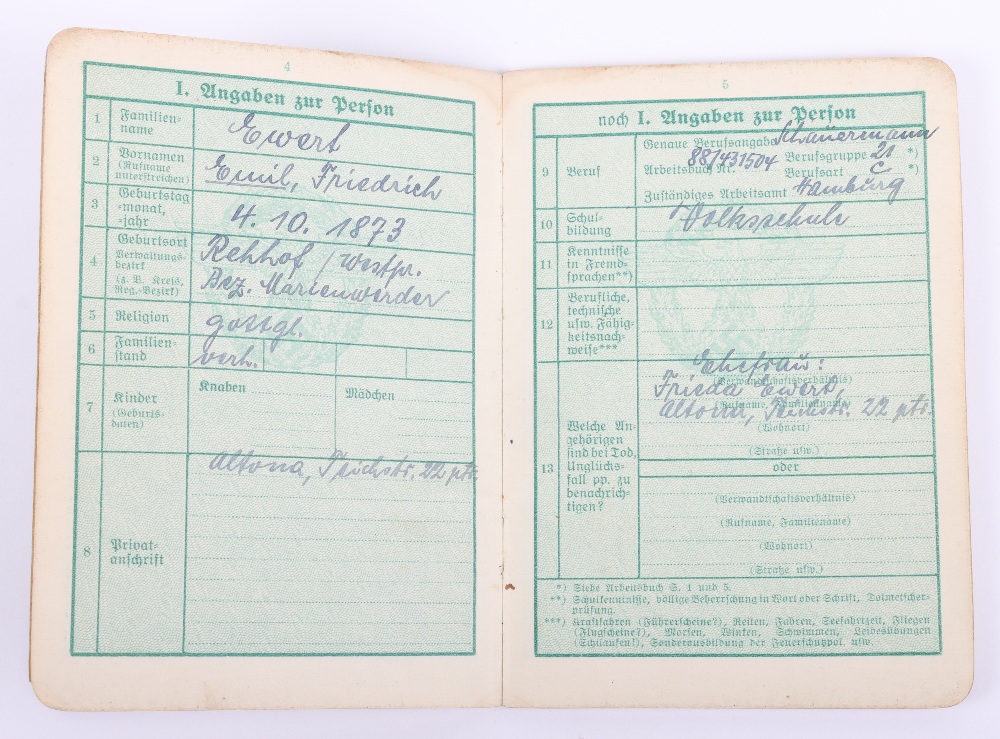 4
I. Angaben zur Person
1 Familien-
name
Ewert
2 Vornamen
(Rufname
unterstreichen)
Emil, Friedrich
3 Geburtstag
-monat,
-jahr
4. 10. 1873
4 Geburtsort
Verwaltungs-
bezirk
(z. B. Kreis,
Reg.-Bezirk)
Rehhof / Westpr.
Bez. Marienwerder
5 Religion
gottgl.
6 Familien-
stand
verh.
7 Kinder
(Geburts-
daten)
Knaben
Mädchen
8 Privat-
anschrift
Altona, Teichstr. 22 ptr.
5
noch I. Angaben zur Person
9 Beruf
Genaue Berufsangabe Schauermann
Arbeitsbuch Nr. 88/431504 Berufsgruppe 21 *)
Berufsart c *)
Zuständiges Arbeitsamt Hamburg
10 Schul-
bildung
Volksschule
11 Kenntnisse
in Fremd-
sprachen**)
12 Berufliche,
technische
usw. Fähig-
keitsnach-
weise***
13 Welche An-
gehörigen
sind bei Tod,
Unglücks-
fall pp. zu
benachrich-
tigen?
Ehefrau:
(Verwandtschaftsverhältnis)
Frieda Ewert,
(Rufname, Familienname)
Altona, Teichstr. 22 ptr.
(Wohnort)
(Straße usw.)
oder
(Verwandtschaftsverhältnis)
(Rufname, Familienname)
(Wohnort)
(Straße usw.)
*) Siehe Arbeitsbuch S. 1 und 5.
**) Schulkenntnisse, völlige Beherrschung in Wort oder Schrift, Dolmetscher-
prüfung.
***) Kraftfahren (Führerscheine?), Reiten, Fahren, Seefahrtzeit, Fliegen
(Flugscheine?), Morsen, Winken, Schwimmen, Leibesübungen
(Schilaufen?), Sonderausbildung der Feuerschutzpol. usw.